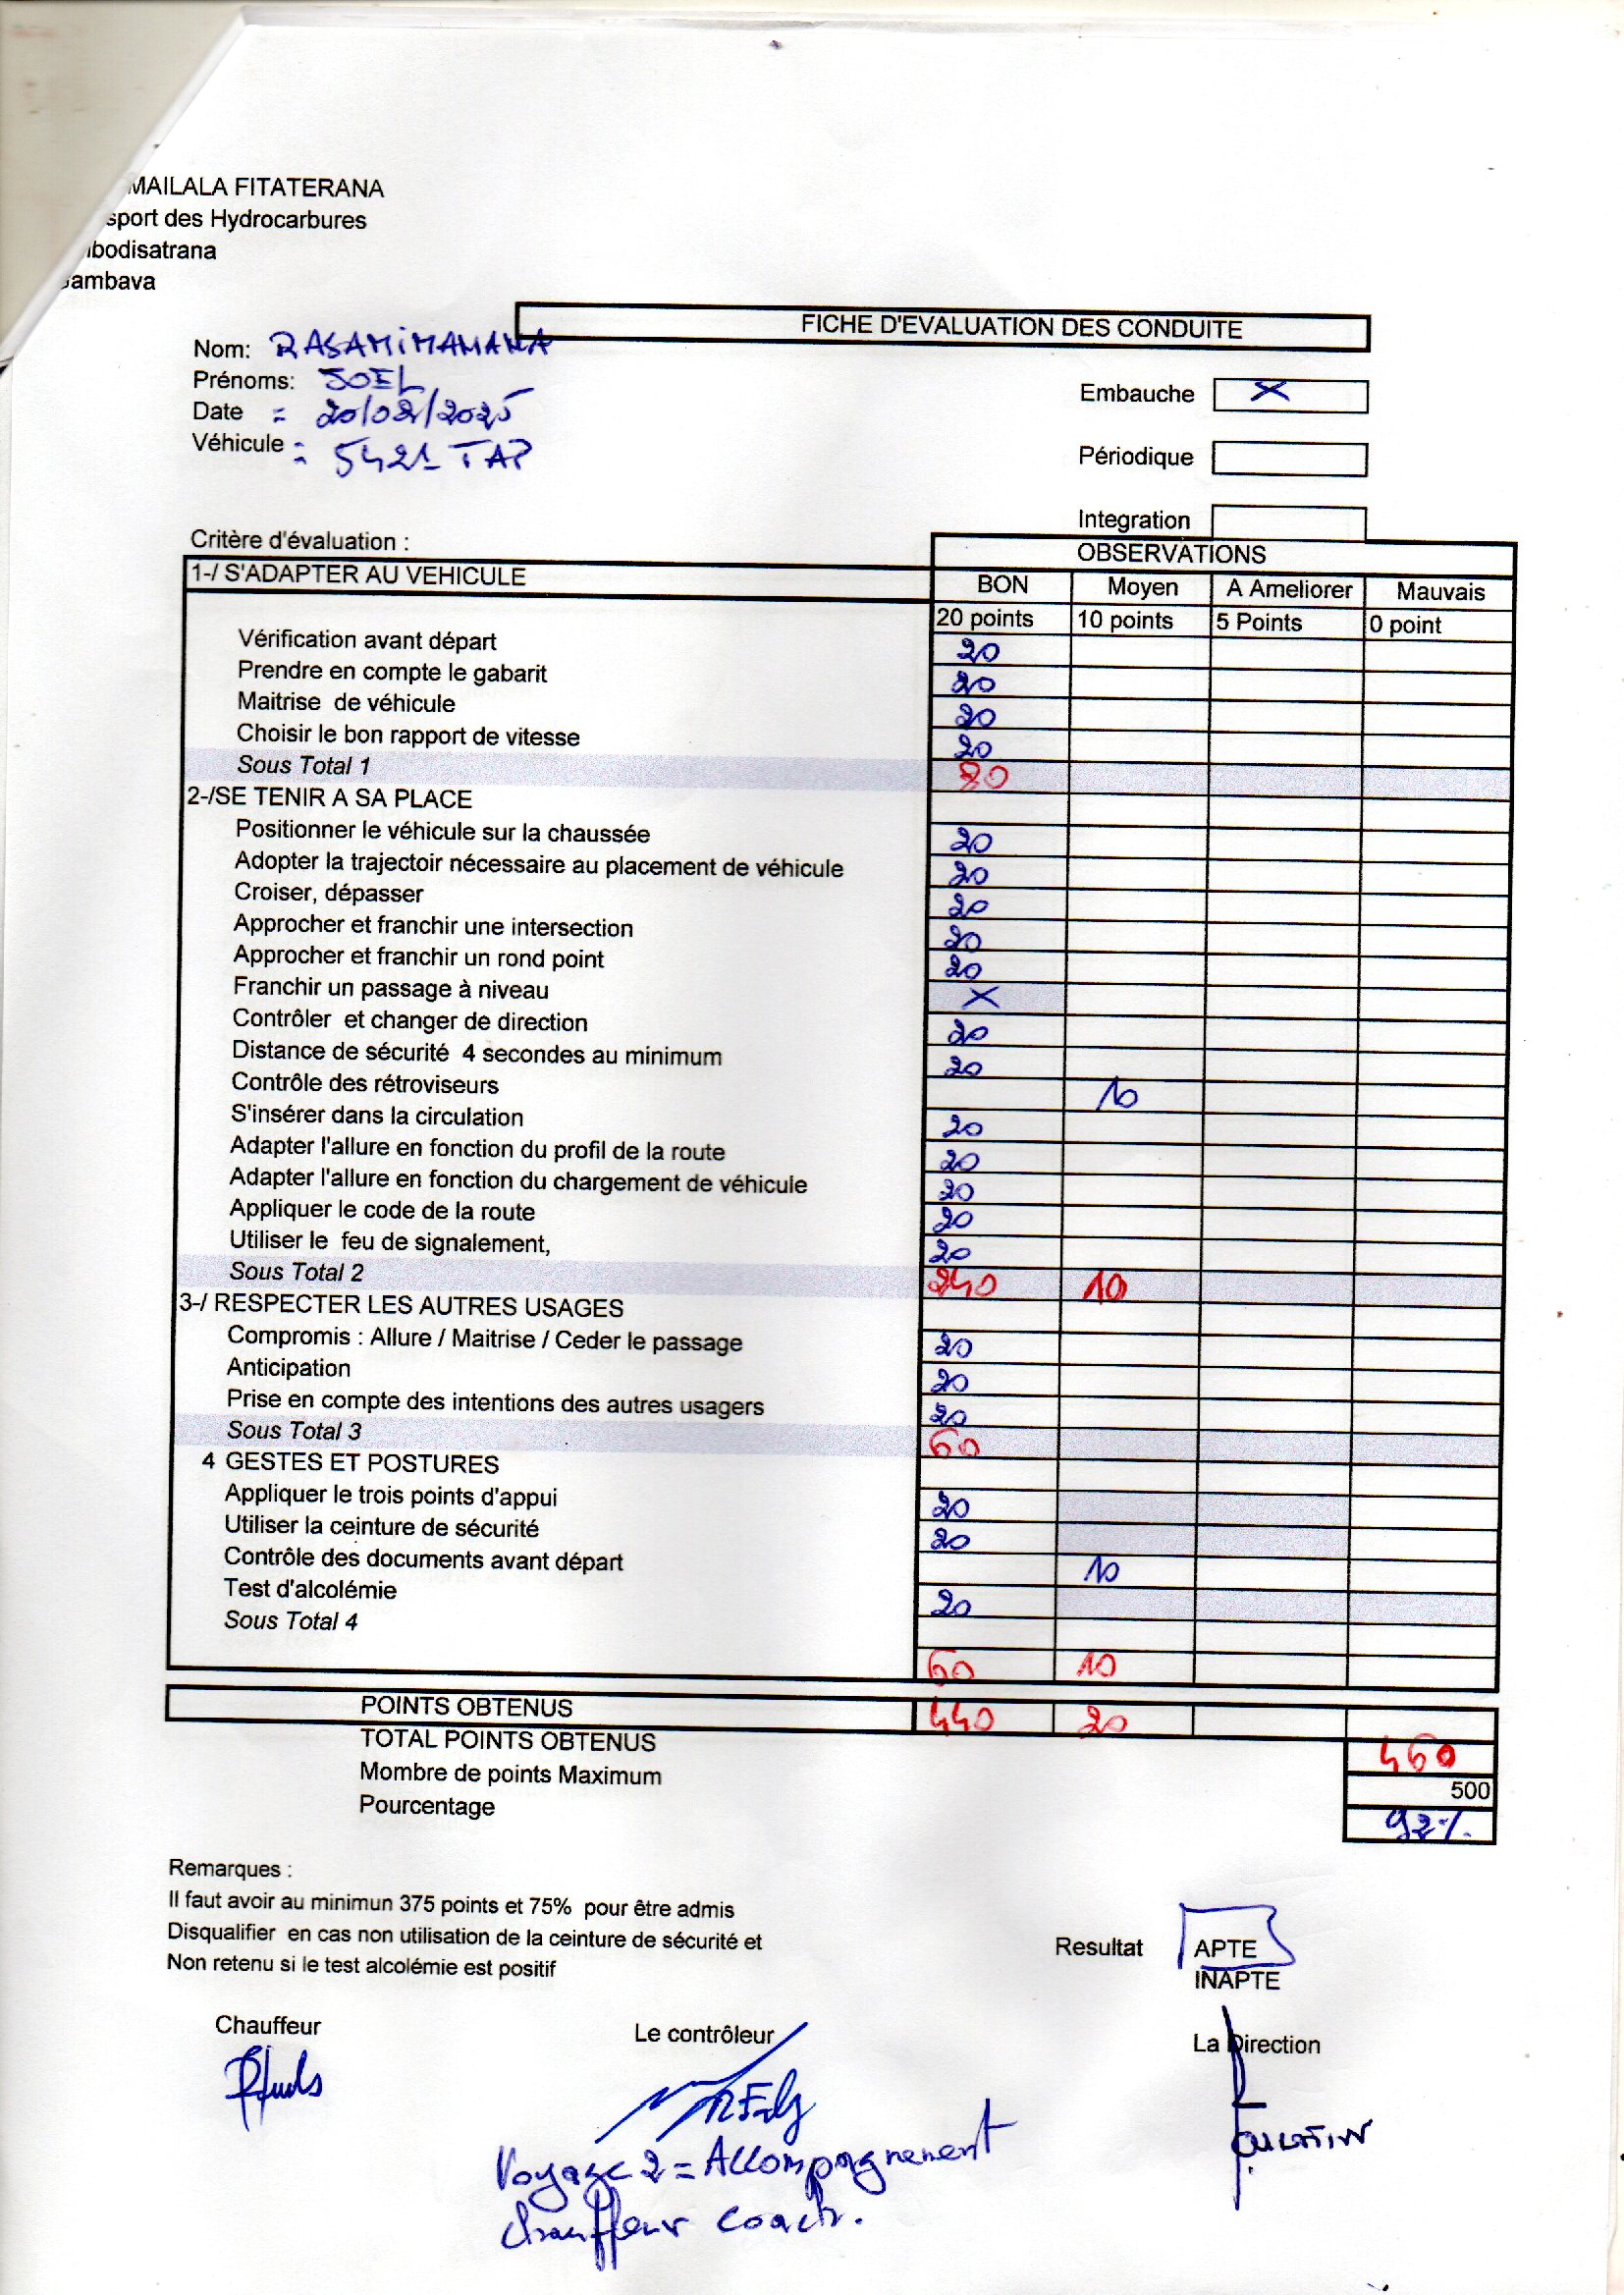 MAILALA FITATERANA
sport des Hydrocarbures
bodisatrana
ambava
FICHE D'EVALUATION DES CONDUITE
Nom: RASAMIMANANA
Prénoms: JOEL
Date = 20/02/2025
Véhicule = 5421 TAP
Embauche X
Périodique
Integration
Critère d'évaluation :
OBSERVATIONS
1-/ S'ADAPTER AU VEHICULE BON Moyen A Ameliorer Mauvais
20 points 10 points 5 Points 0 point
Vérification avant départ 20
Prendre en compte le gabarit 20
Maitrise de véhicule 20
Choisir le bon rapport de vitesse 20
Sous Total 1 80
2-/SE TENIR A SA PLACE
Positionner le véhicule sur la chaussée 20
Adopter la trajectoir nécessaire au placement de véhicule 20
Croiser, dépasser 20
Approcher et franchir une intersection 20
Approcher et franchir un rond point 20
Franchir un passage à niveau X
Contrôler et changer de direction 20
Distance de sécurité 4 secondes au minimum 20
Contrôle des rétroviseurs 10
S'insérer dans la circulation 20
Adapter l'allure en fonction du profil de la route 20
Adapter l'allure en fonction du chargement de véhicule 20
Appliquer le code de la route 20
Utiliser le feu de signalement, 20
Sous Total 2 240 10
3-/ RESPECTER LES AUTRES USAGES
Compromis : Allure / Maitrise / Ceder le passage 20
Anticipation 20
Prise en compte des intentions des autres usagers 20
Sous Total 3 60
4 GESTES ET POSTURES
Appliquer le trois points d'appui 20
Utiliser la ceinture de sécurité 20
Contrôle des documents avant départ 10
Test d'alcolémie 20
Sous Total 4
60 10
POINTS OBTENUS 440 20
TOTAL POINTS OBTENUS 460
Mombre de points Maximum 500
Pourcentage 92%
Remarques :
Il faut avoir au minimun 375 points et 75% pour être admis
Disqualifier en cas non utilisation de la ceinture de sécurité et
Non retenu si le test alcolémie est positif
Resultat APTE
INAPTE
Chauffeur Le contrôleur La Direction
Voyage 2 = Accompagnement
chauffeur coach.